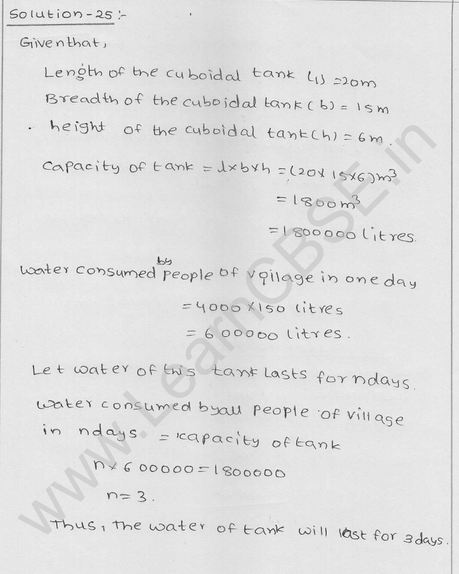 Solution-25:-
Given that,
Length of the cuboidal tank (l) = 20m
Breadth of the cuboidal tank (b) = 15m
height of the cuboidal tank (h) = 6m.
Capacity of tank = l×b×h = (20× 15×6)m³
= 1800m³
= 1800000 litres.
by
water consumed people of village in one day
= 4000 ×150 litres
= 600000 litres.
Let water of this tank lasts for n days.
water consumed by all people of village
in n days = capacity of tank
n×600000 = 1800000
n = 3.
Thus, the water of tank will last for 3 days.
www.LearnCBSE.in